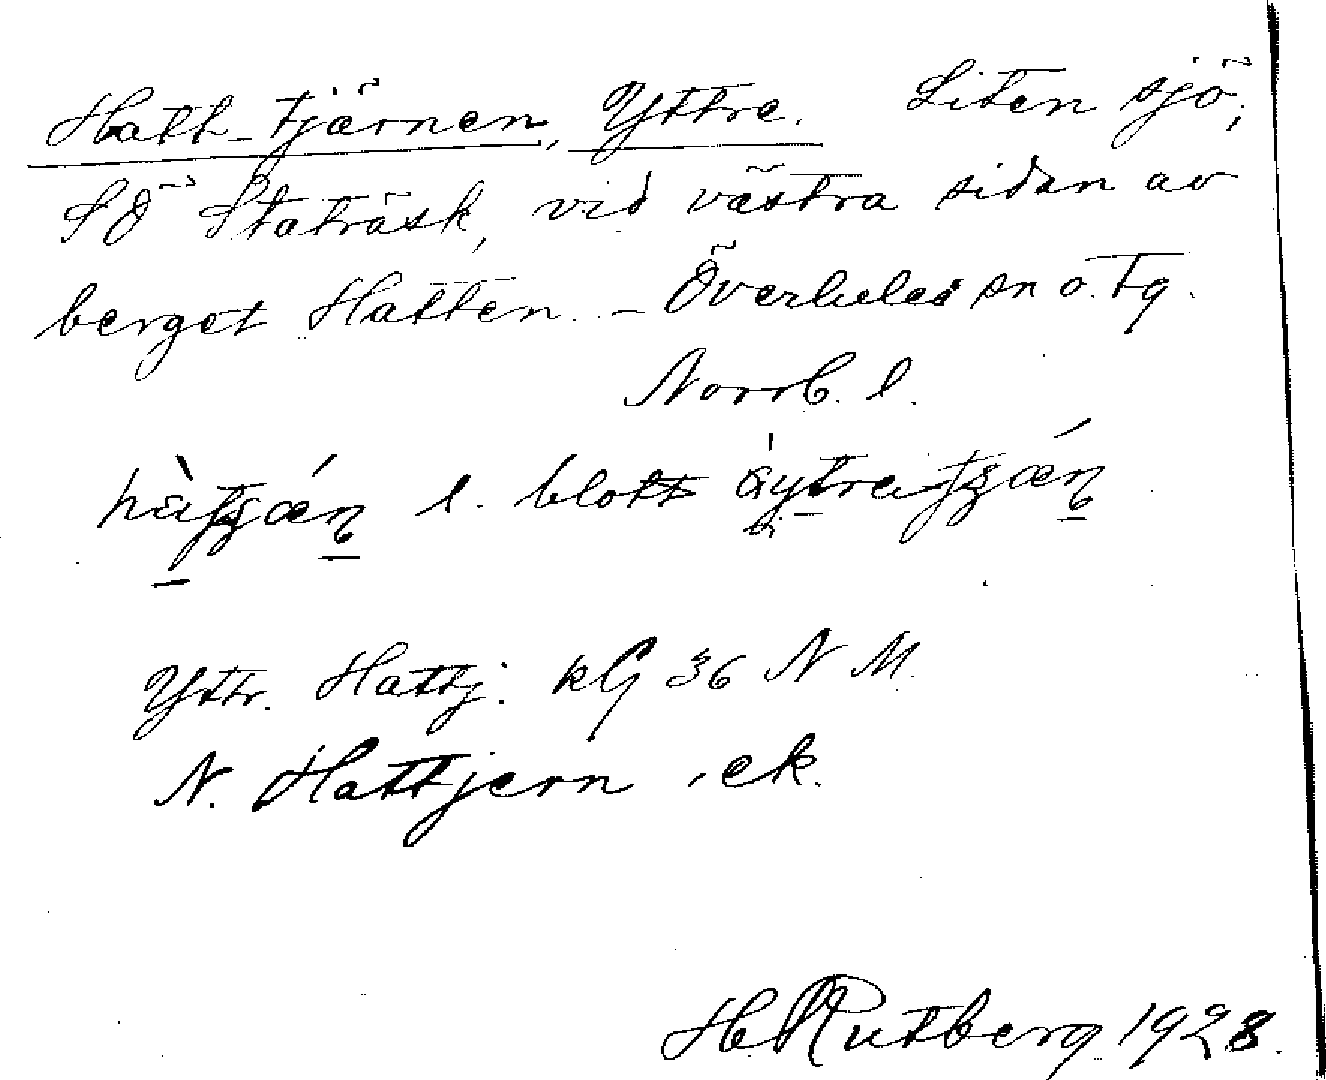 Hatt-tjärnen, Yttre. Liten sjö,
SÖ Staträsk, vid västra sidan av
berget Hatten. – Överlulea sn o. tg.
Norrb. l.
l. blott
Yttr. Hattj. kG 36 N M.
N. Hattjern, ek.
H. Rutberg 1928.